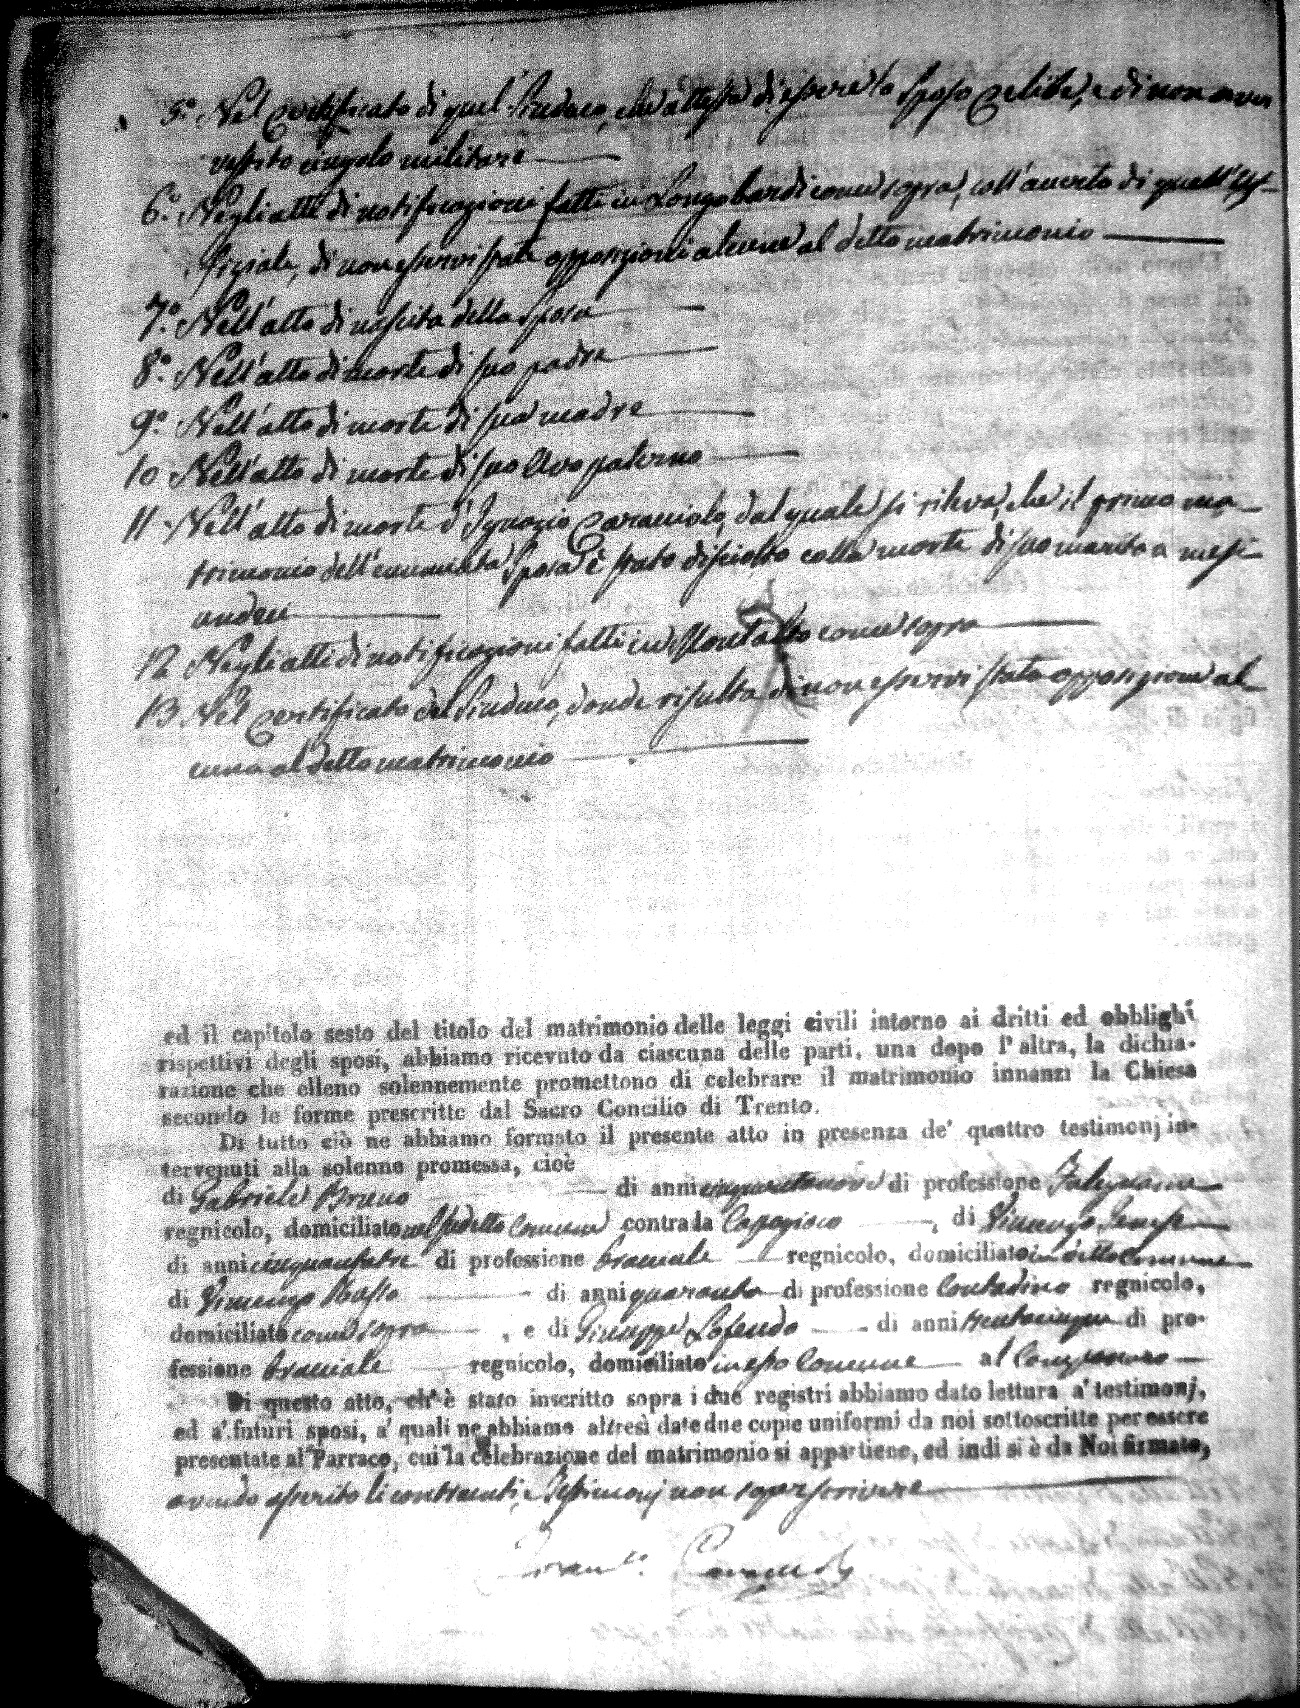 5.° Nel Certificato di quel Sindaco, che attesta di essere lo Sposo Celibe, e di non aver
vestito cingolo militare
6.° Negli atti di notificazioni fatte in Longobardi come sopra, coll'accerto di quell'Uf-
fiziale, di non esservi state opposizioni alcune al detto matrimonio
7.° Nell'atto di nascita della Sposa
8.° Nell'atto di morte di suo padre
9.° Nell'atto di morte di sua madre
10 Nell'atto di morte di suo Avo paterno
11 Nell'atto di morte d'Ignazio Caracciolo, dal quale si rileva, che il primo ma-
trimonio dell'enunciata Sposa è stato disciolto colla morte di suo marito a
12 Negli atti di notificazioni fatti in Montalto come sopra
13 Nel Certificato del Sindaco, donde risulta di non esservi stata opposizione al-
cuna al detto matrimonio
ed il capitolo sesto del titolo del matrimonio delle leggi civili intorno ai dritti ed obblighi
rispettivi degli sposi, abbiamo ricevuto da ciascuna delle parti, una dopo l'altra, la dichia-
razione che elleno solennemente promettono di celebrare il matrimonio innanzi la Chiesa
secondo le forme prescritte dal Sacro Concilio di Trento.
Di tutto ciò ne abbiamo formato il presente atto in presenza de' quattro testimonj in-
tervenuti alla solenne promessa, cioè
di Gabriele Bruno di anni cinquantanove di professione Falegname
regnicolo, domiciliato nel sudetto Comune contrada , di Vincenzo
di anni cinquantatre di professione bracciale regnicolo, domiciliato in detto Comune
di Vincenzo di anni quaranta di professione Contadino regnicolo,
domiciliato come sopra , e di Giuseppe di anni trentacinque di pro-
fessione bracciale regnicolo, domiciliato in esso Comune al
Di questo atto, ch'è stato inscritto sopra i due registri abbiamo dato lettura a' testimonj,
ed a' futuri sposi, a' quali ne abbiamo altresì date due copie uniformi da noi sottoscritte per essere
presentate al Parraco, cui la celebrazione del matrimonio si appartiene, ed indi si è da Noi firmato,
avendo asserito li contraenti, e Testimonj non saper scrivere